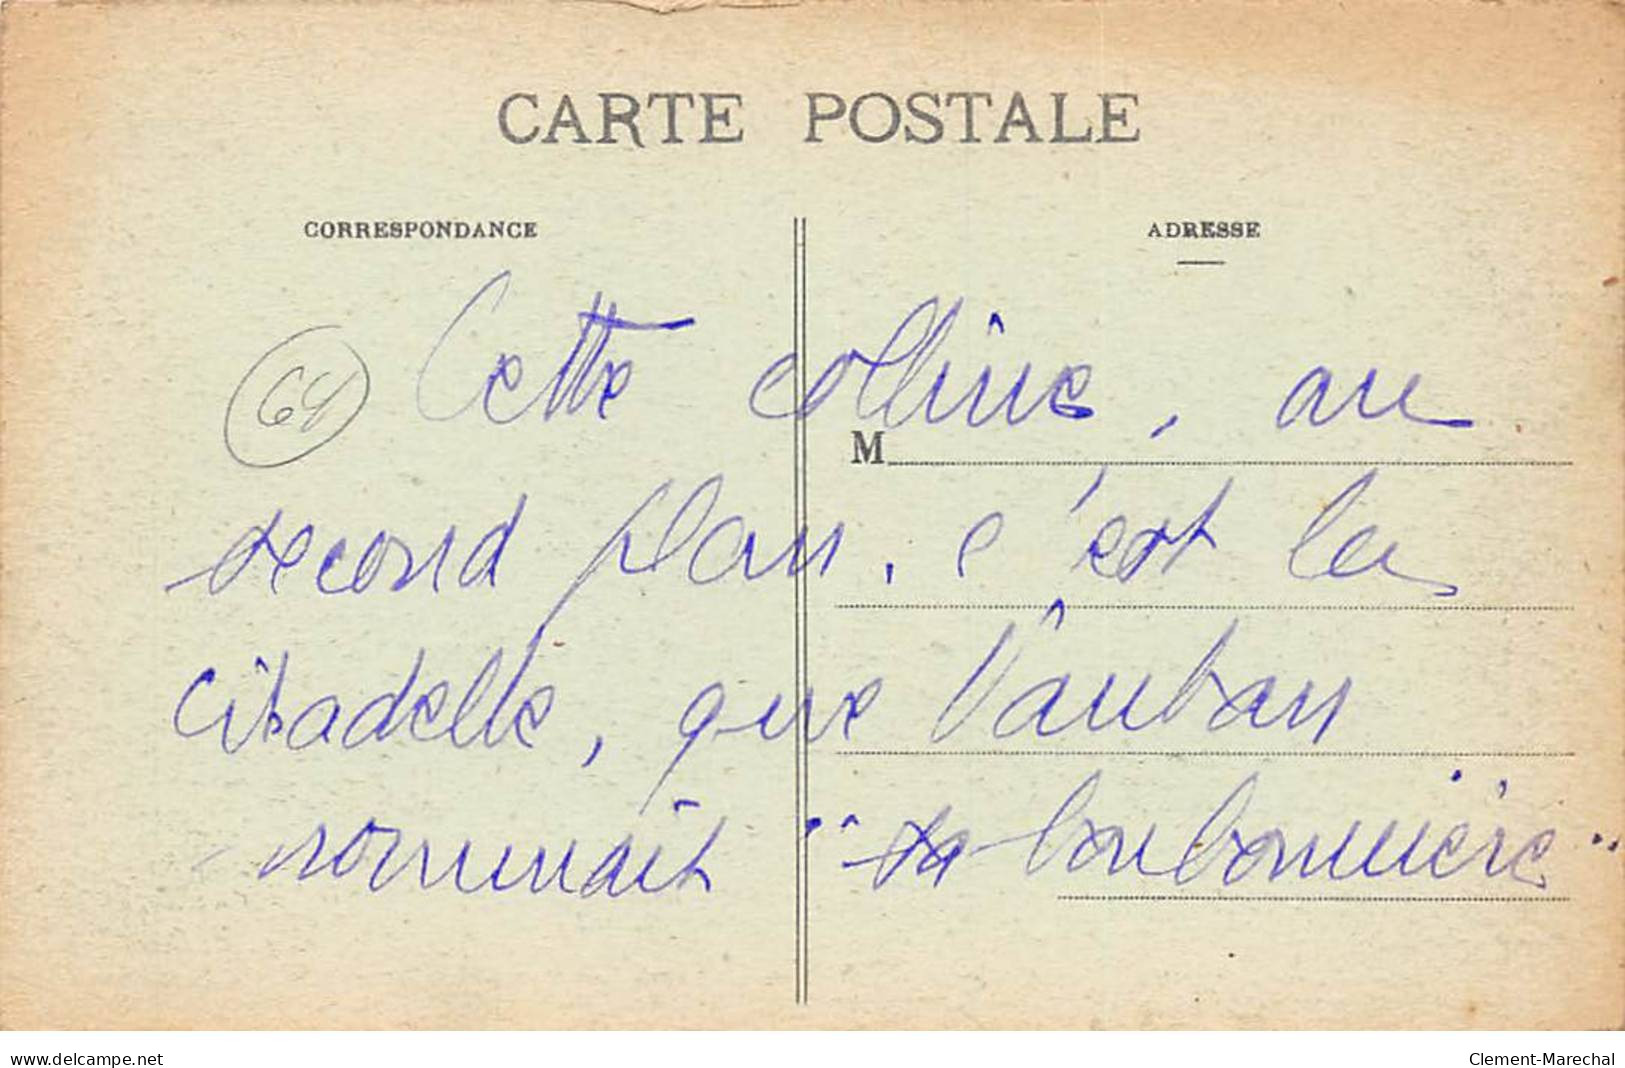 CARTE POSTALE
CORRESPONDANCE
ADRESSE
64
Cette colline, au
M
second plan, c'est la
citadelle, que Vauban
nommait "sa bonbonnière"
www.delcampe.net
Clement-Marechal